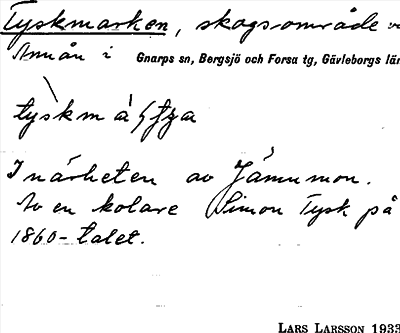 Tyskmarken, skogsområde v
Annån i Gnarps sn, Bergsjö och Forsa tg, Gävleborgs län
I närheten av Jämnmon.
Av en kolare Simon Tysk på
1860-talet.
LARS LARSSON 1933